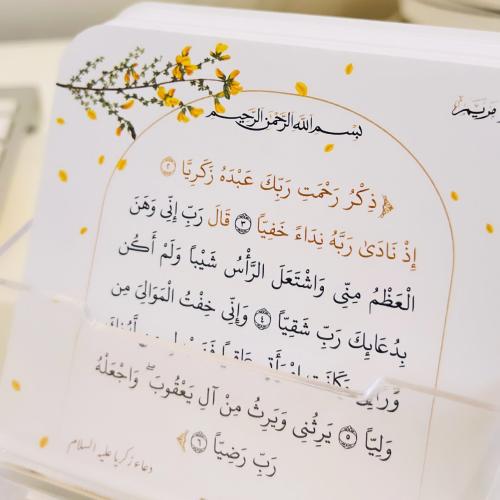 مريم
بسم الله الرحمن الرحيم
﴿ذِكْرُ رَحْمَتِ رَبِّكَ عَبْدَهُ زَكَرِيَّا ٢
إِذْ نَادَىٰ رَبَّهُ نِدَاءً خَفِيّاً ٣ قَالَ رَبِّ إِنِّي وَهَنَ
الْعَظْمُ مِنِّي وَاشْتَعَلَ الرَّأْسُ شَيْباً وَلَمْ أَكُن
بِدُعَائِكَ رَبِّ شَقِيّاً ٤ وَإِنِّي خِفْتُ الْمَوَالِيَ مِن
وَكَانَتِ
وَلِيّاً ٥ يَرِثُنِي وَيَرِثُ مِنْ آلِ يَعْقُوبَ ۖ وَاجْعَلْهُ
رَبِّ رَضِيّاً ٦﴾
دعاء زكريا عليه السلام